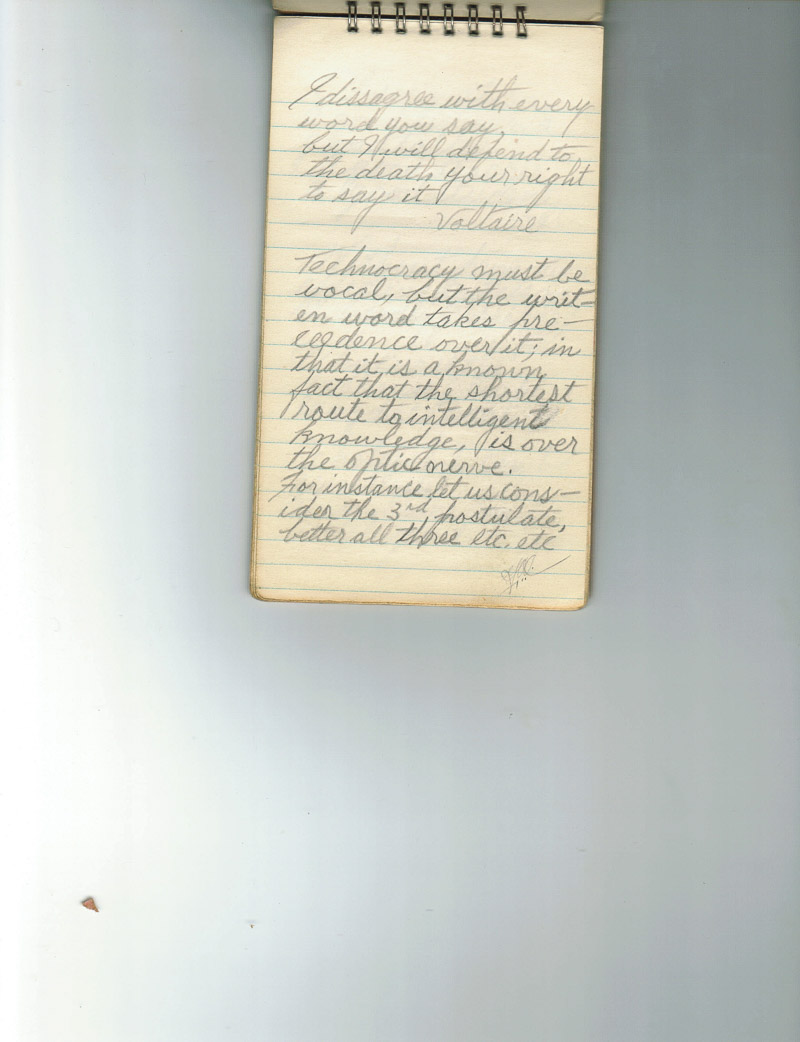 I dissagree with every
word you say,
but I will defend to
the death your right
to say it
Voltaire
Technocracy must be
vocal, but the writ-
en word takes pre-
ceedence over it; in
that it is a known
fact that the shortest
route to intelligent
knowledge, is over
the optic nerve.
For instance let us cons-
ider the 3rd postulate,
better all three etc. etc